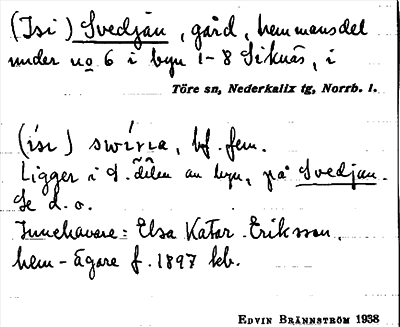 (Isi) Svedjan, gård, hemmansdel
under no 6 i byn 1-8 Siknäs, i
Töre sn, Nederkalix tg, Norrb. l.
(ísı) bf. fem.
Ligger i d. delen av byn, på Svedjan.
Se d. o.
Innehavare: Elsa Katar. Eriksson,
hem-ägare f. 1897 kb.
EDVIN BRÄNNSTRÖM 1938